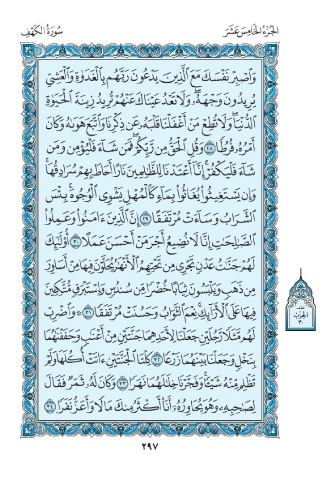 الجزء الخامس عشر
سورة الكهف
وَٱصۡبِرۡ نَفۡسَكَ مَعَ ٱلَّذِينَ يَدۡعُونَ رَبَّهُم بِٱلۡغَدَوٰةِ وَٱلۡعَشِيِّ
يُرِيدُونَ وَجۡهَهُۥۖ وَلَا تَعۡدُ عَيۡنَاكَ عَنۡهُمۡ تُرِيدُ زِينَةَ ٱلۡحَيَوٰةِ
ٱلدُّنۡيَاۖ وَلَا تُطِعۡ مَنۡ أَغۡفَلۡنَا قَلۡبَهُۥ عَن ذِكۡرِنَا وَٱتَّبَعَ هَوَىٰهُ وَكَانَ
أَمۡرُهُۥ فُرُطٗا ٢٨ وَقُلِ ٱلۡحَقُّ مِن رَّبِّكُمۡۖ فَمَن شَآءَ فَلۡيُؤۡمِن وَمَن
شَآءَ فَلۡيَكۡفُرۡۚ إِنَّآ أَعۡتَدۡنَا لِلظَّٰلِمِينَ نَارًا أَحَاطَ بِهِمۡ سُرَادِقُهَاۚ
وَإِن يَسۡتَغِيثُواْ يُغَاثُواْ بِمَآءٖ كَٱلۡمُهۡلِ يَشۡوِي ٱلۡوُجُوهَۚ بِئۡسَ
ٱلشَّرَابُ وَسَآءَتۡ مُرۡتَفَقًا ٢٩ إِنَّ ٱلَّذِينَ ءَامَنُواْ وَعَمِلُواْ
ٱلصَّٰلِحَٰتِ إِنَّا لَا نُضِيعُ أَجۡرَ مَنۡ أَحۡسَنَ عَمَلًا ٣٠ أُوْلَٰٓئِكَ
لَهُمۡ جَنَّٰتُ عَدۡنٖ تَجۡرِي مِن تَحۡتِهِمُ ٱلۡأَنۡهَٰرُ يُحَلَّوۡنَ فِيهَا مِنۡ أَسَاوِرَ
مِن ذَهَبٖ وَيَلۡبَسُونَ ثِيَابًا خُضۡرٗا مِّن سُندُسٖ وَإِسۡتَبۡرَقٖ مُّتَّكِـِٔينَ
فِيهَا عَلَى ٱلۡأَرَآئِكِۚ نِعۡمَ ٱلثَّوَابُ وَحَسُنَتۡ مُرۡتَفَقٗا ٣١ ۞ وَٱضۡرِبۡ
لَهُم مَّثَلٗا رَّجُلَيۡنِ جَعَلۡنَا لِأَحَدِهِمَا جَنَّتَيۡنِ مِنۡ أَعۡنَٰبٖ وَحَفَفۡنَٰهُمَا
بِنَخۡلٖ وَجَعَلۡنَا بَيۡنَهُمَا زَرۡعٗا ٣٢ كِلۡتَا ٱلۡجَنَّتَيۡنِ ءَاتَتۡ أُكُلَهَا وَلَمۡ
تَظۡلِم مِّنۡهُ شَيۡـٔٗاۚ وَفَجَّرۡنَا خِلَٰلَهُمَا نَهَرٗا ٣٣ وَكَانَ لَهُۥ ثَمَرٞ فَقَالَ
لِصَٰحِبِهِۦ وَهُوَ يُحَاوِرُهُۥٓ أَنَا۠ أَكۡثَرُ مِنكَ مَالٗا وَأَعَزُّ نَفَرٗا ٣٤
الحزب
٣٠
٢٩٧